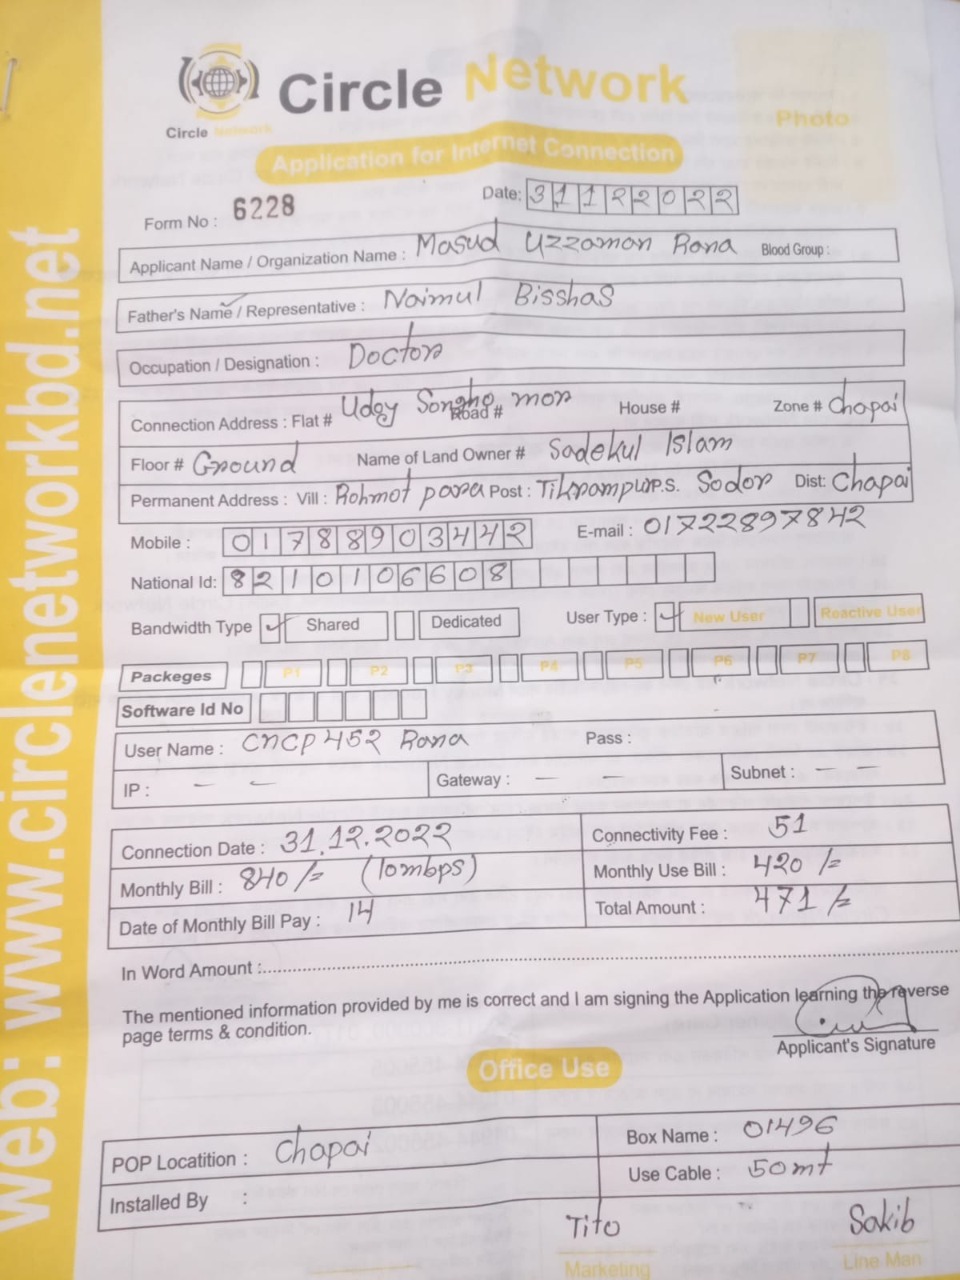 Circle Network
Circle Network
Photo
Application for Internet Connection
Form No : 6228
Date: 31122022
Applicant Name / Organization Name : Masud Uzzaman Rana Blood Group :
Father's Name / Representative : Naimul Bisshas
Occupation / Designation : Doctor
Connection Address : Flat # Udoy Songho mor Road # House # Zone # Chapai
Floor # Ground Name of Land Owner # Sadekul Islam
Permanent Address : Vill : Rohmot para Post : Tikrampur P.S. Sodor Dist: Chapai
Mobile : 01788903442 E-mail : 01722897842
National Id: 8210106608
Bandwidth Type Shared Dedicated User Type : New User Reactive User
Packeges P1 P2 P3 P4 P5 P6 P7 P8
Software Id No
User Name : CNCP452 Rana Pass :
IP : — — Gateway : — — Subnet : — —
Connection Date : 31.12.2022 Connectivity Fee : 51
Monthly Bill : 840/= (10mbps) Monthly Use Bill : 420/=
Date of Monthly Bill Pay : 14 Total Amount : 471/=
In Word Amount :
The mentioned information provided by me is correct and I am signing the Application learning the reverse
page terms & condition.
Applicant's Signature
Office Use
POP Locatition : Chapai Box Name : 01496
Installed By : Use Cable : 50mt
Tito Sakib
Marketing Line Man
web: www.circlenetworkbd.net